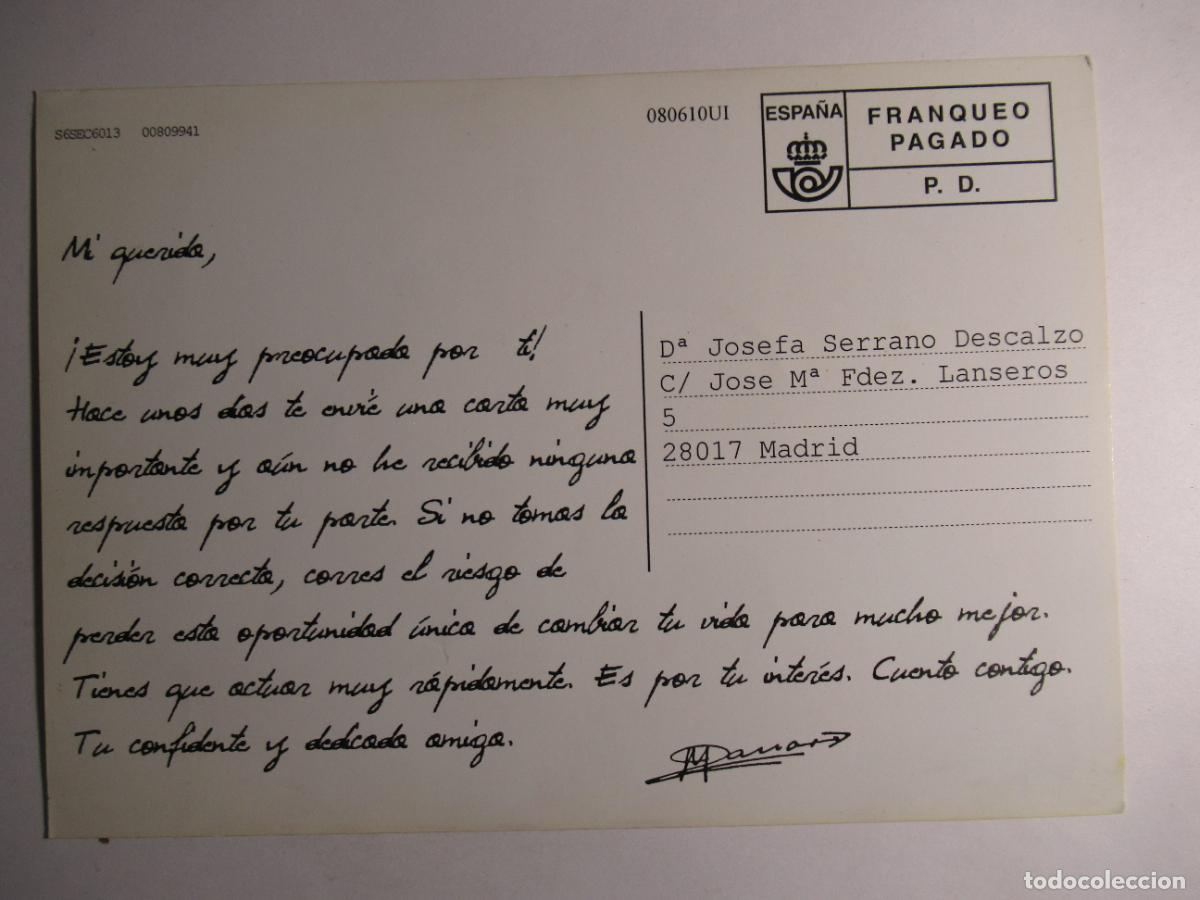 S6SEC6013 00809941
080610UI
ESPAÑA
FRANQUEO
PAGADO
P. D.
Mi querida,
¡Estoy muy preocupada por ti!
Hace unos días te envié una carta muy
importante y aún no he recibido ninguna
respuesta por tu parte. Si no tomas la
decisión correcta, corres el riesgo de
perder esta oportunidad única de cambiar tu vida para mucho mejor.
Tienes que actuar muy rápidamente. Es por tu interés. Cuento contigo.
Tu confidente y dedicada amiga.
Dª Josefa Serrano Descalzo
C/ Jose Mª Fdez. Lanseros
5
28017 Madrid
todocoleccion